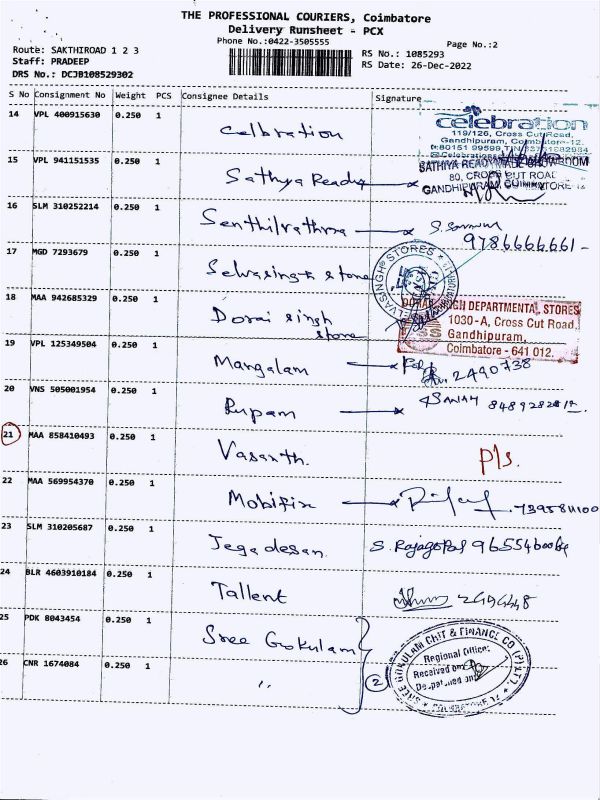 THE PROFESSIONAL COURIERS, Coimbatore
Delivery Runsheet - PCX
Phone No.:0422-3505555
Page No.:2
Route: SAKTHIROAD 1 2 3
RS No.: 1085293
Staff: PRADEEP
RS Date: 26-Dec-2022
DRS No.: DCJB108529302
S No Consignment No Weight PCS Consignee Details Signature
14 VPL 400915630 0.250 1 Celbration
celebration
119/126, Cross Cut Road,
Gandhipuram, Coimbatore-12.
15 VPL 941151535 0.250 1 Sathya Ready
SATHYA READYMADE SHOWROOM
80, CROSS CUT ROAD
GANDHIPURAM, COIMBATORE-12
16 SLM 310252214 0.250 1 Senthilrathna
9786666661
17 MGD 7293679 0.250 1 Selvasingh store
SELVASINGH STORES
18 MAA 942685329 0.250 1 Dorai singh
store
DORAI SINGH DEPARTMENTAL STORES
1030-A, Cross Cut Road,
Gandhipuram,
Coimbatore - 641 012.
19 VPL 125349504 0.250 1 Mangalam
2490738
20 VNS 505001954 0.250 1 Rupam
21 MAA 858410493 0.250 1 Vasanth.
P/s.
22 MAA 569954370 0.250 1 Mobifix
23 SLM 310205687 0.250 1 Jegadesan S. Rajagopal
24 BLR 4603910184 0.250 1 Tallent
25 PDK 8043454 0.250 1 Sree Gokulam
26 CNR 1674084 0.250 1 "
2
SREE GOKULAM CHIT & FINANCE CO (P) LTD.
Regional Office:
Received on
Despatched on
COIMBATORE